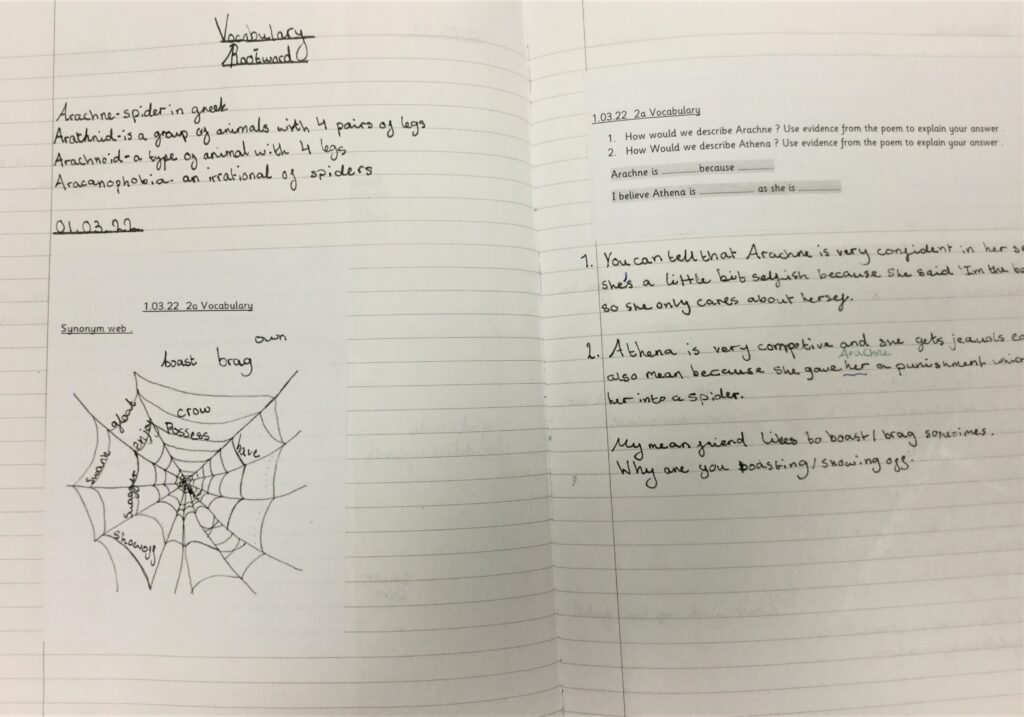 Vocabulary
Rootword
Arachne - spider in greek
Arachnid - is a group of animals with 4 pairs of legs
Arachnoid - a type of animal with 4 legs
Aracanophobia - an irrational of spiders
01.03.22
1.03.22 2a Vocabulary
Synonym web .
own
boast brag
crow
Possess
gloat
enjoy
have
swank
swagger
showoff
1.03.22 2a Vocabulary
1. How would we describe Arachne ? Use evidence from the poem to explain your answer .
2. How Would we describe Athena ? Use evidence from the poem to explain your answer .
Arachne is ................ because ................
I believe Athena is ................ as she is ................
1. You can tell that Arachne is very confident in her
she's a little bit selfish because she said 'Im the
so she only cares about herself.
2. Athena is very competive and she gets jeauols
Arachne
also mean because she gave her a punishment
her into a spider.
My mean friend likes to boast/brag sometimes.
Why are you boasting/showing off.